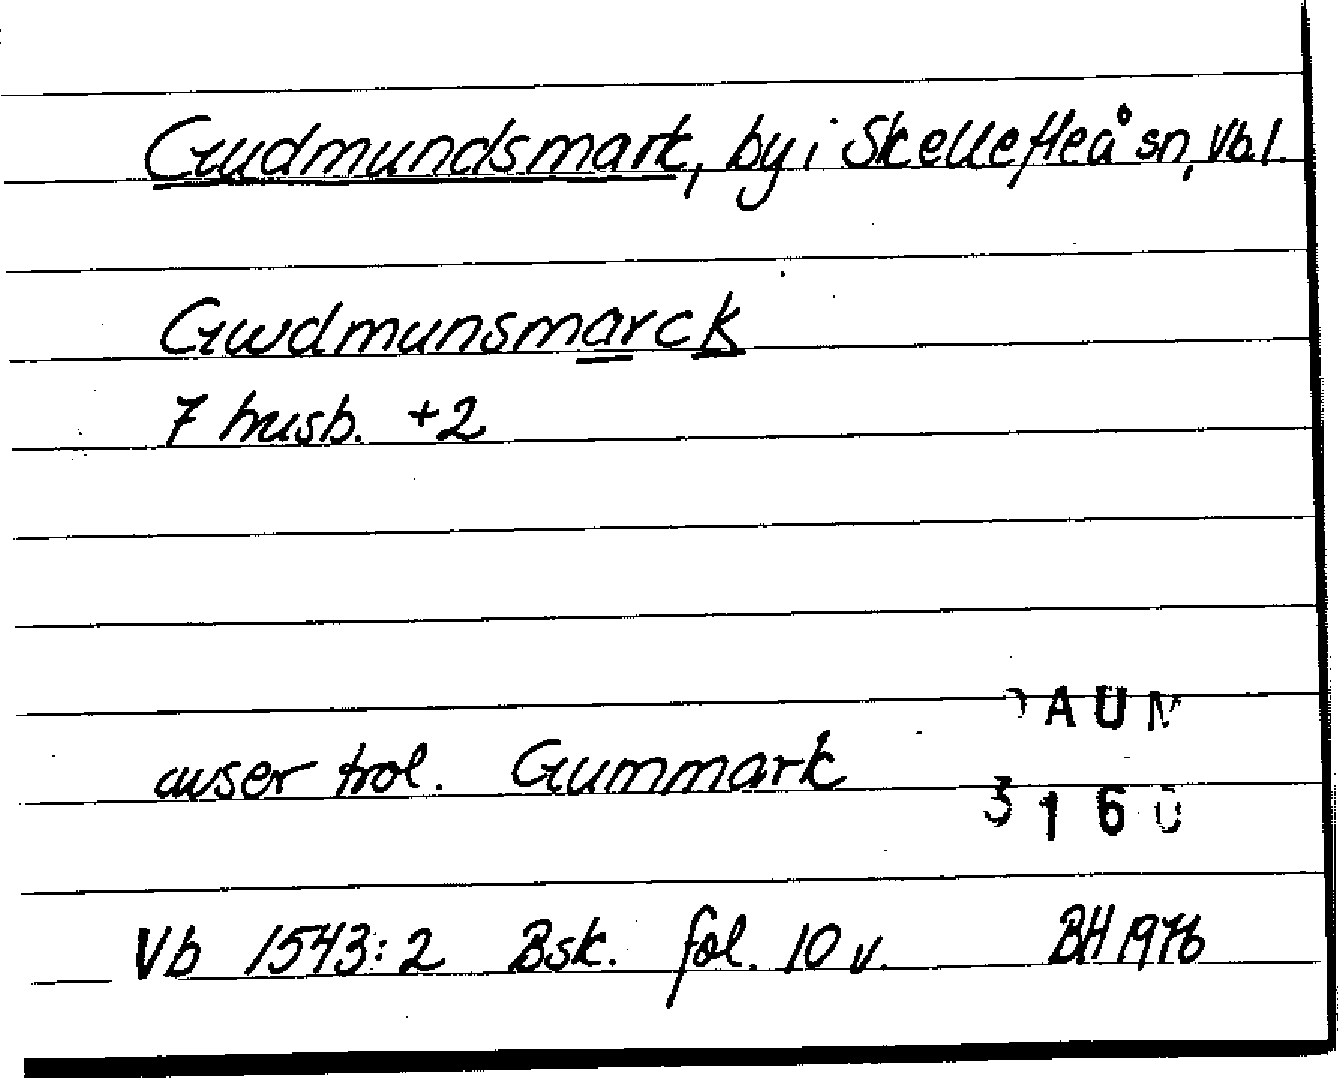 Gudmundsmark, by i Skellefteå sn, Vb.l.
Gwdmunsmarck
7 husb. +2
DAUM
avser trol. Gummark
3160
Vb 1543:2 Bsk. fol. 10 v. BH 1976